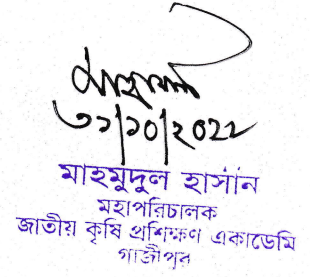 ৩১/১০/২০২২
মাহমুদুল হাসান
মহাপরিচালক
জাতীয় কৃষি প্রশিক্ষণ একাডেমি
গাজীপুর